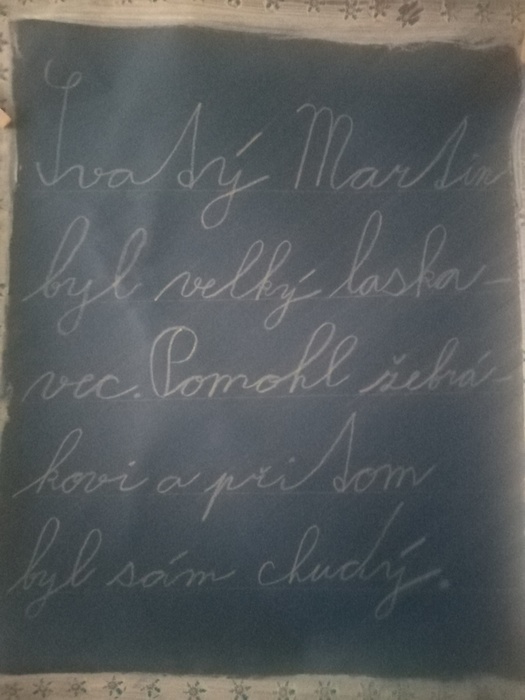 Svatý Martin
byl velký laska-
vec. Pomohl žebrá-
kovi a při tom
byl sám chudý.